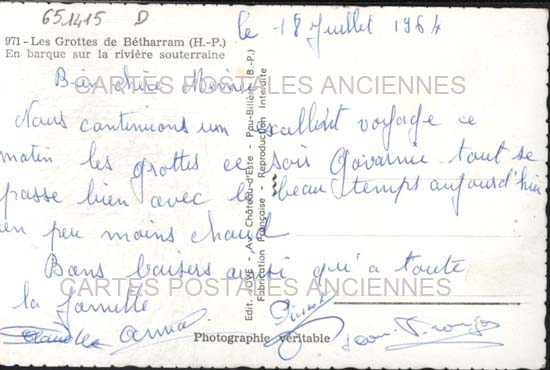 651415 D
le 18 Juillet 1964
971 - Les Grottes de Bétharram (H.-P.)
En barque sur la rivière souterraine
Bien chère Mémé
CARTES POSTALES ANCIENNES
Nous continuons un excellent voyage ce
matin les grottes ce soir Gavarnie tout se
passe bien avec le beau temps aujourd'hui
un peu moins chaud
Bons baisers ainsi qu'a toute
CARTES POSTALES ANCIENNES
la famille
Claudette Anna Pierrot Jean-
Photographie véritable
Edit. JOVE - Av. Château-d'Este - Pau-Billère (B.-P.)
Fabrication Française - Reproduction Interdite